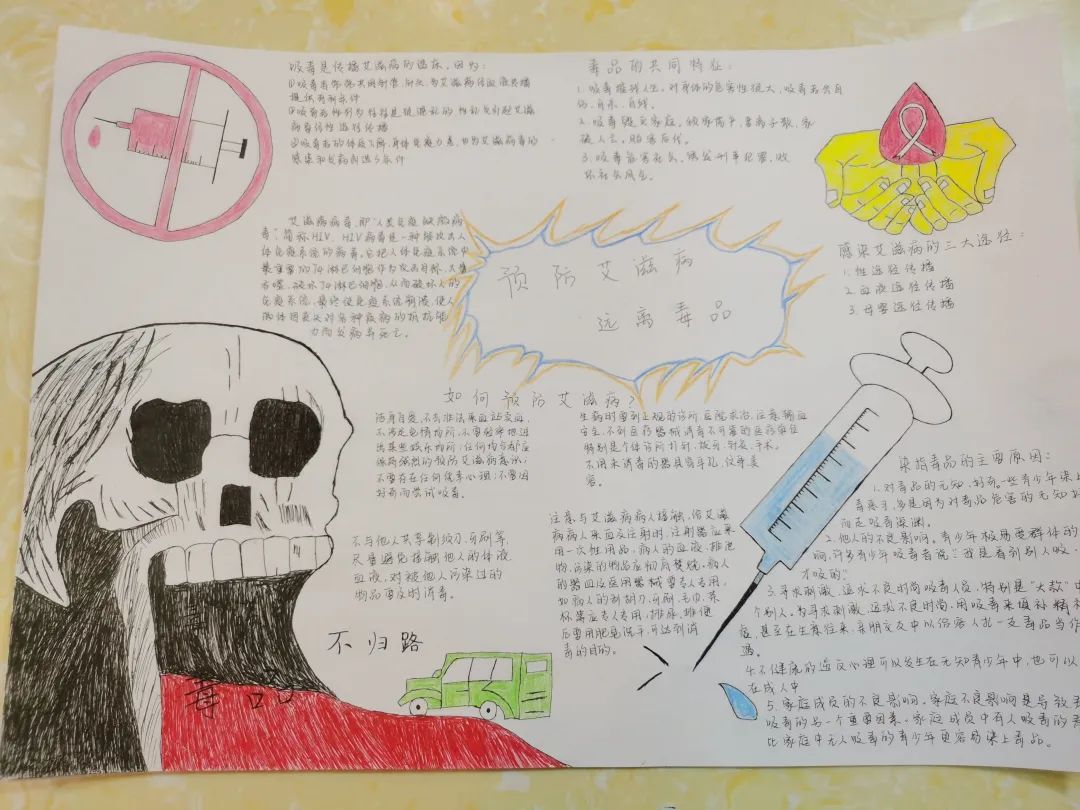 吸毒是传播艾滋病的温床，因为：
毒品的共同特征：
1. 吸毒摧残人生。对身体的危害性很大，吸毒者会自
伤、自杀、自残。
2. 吸毒毁灭家庭。倾家荡产，妻离子散，家
破人亡，贻害后代。
3. 吸毒危害社会，诱发刑事犯罪，败
坏社会风气。
艾滋病病毒，即"人类免疫缺陷病
毒"，简称HIV。HIV病毒是一种能攻击人
体免疫系统的病毒。它把人体免疫系统中
最重要的T4淋巴细胞作为攻击目标，大量
吞噬、破坏T4淋巴细胞，从而破坏人的
免疫系统，最终使免疫系统崩溃，使人
病体因丧失对各种疾病的抵抗能
力而发病并死亡。
预防艾滋病
远离毒品
感染艾滋病的三大途径：
1. 性途径传播
2. 血液途径传播
3. 母婴途径传播
如何预防艾滋病？
洁身自爱，不去非法采血站卖血，
不涉足色情场所，不要轻率地进
出某些娱乐场所；任何场合都应
保持强烈的预防艾滋病意识；
不要存在任何侥幸心理；不要因
好奇而尝试吸毒。
生病时要到正规的诊所、医院求治，注意输血
安全，不到医疗器械消毒不可靠的医疗单位
特别是个体诊所打针、拔牙、针灸、手术。
不用未消毒的器具穿耳孔、纹身、美
容。
不与他人共享剃须刀、牙刷等，
尽量避免接触他人的体液
血液，对被他人污染过的
物品要及时消毒。
注意与艾滋病病人接触，给艾滋
病病人采血及注射时，注射器应采
用一次性用品，病人的血液、排泄
物、污染的物品应彻底焚烧。病人
的器皿及医用器械要专人专用，
如病人的刮胡刀、牙刷、毛巾、茶
杯等应专人专用，排尿、排便
后要用肥皂洗手，可达到消
毒的目的。
染指毒品的主要原因：
1. 对毒品的无知、好奇。一些青少年染上
毒瘾，多是因为对毒品危害的无知
而走吸毒深渊。
2. 他人的不良影响。青少年极易受群体的
响，许多青少年吸毒者说："我是看到别人吸，
才吸的"
3. 寻求刺激，追求不良时尚吸毒人员，特别是"大款"中
个别人。为寻求刺激，追求不良时尚，用吸毒来填补精神
虚，甚至在生意往来、亲朋交友中以给客人扎一支毒品当作
遇。
4. 不健康的逆反心理可以发生在无知青少年中，也可以
在成人中
5. 家庭成员的不良影响。家庭不良影响是导致
吸毒的另一个重要因素。家庭成员中有人吸毒的
比家庭中无人吸毒的青少年更容易染上毒品。
不归路
毒品